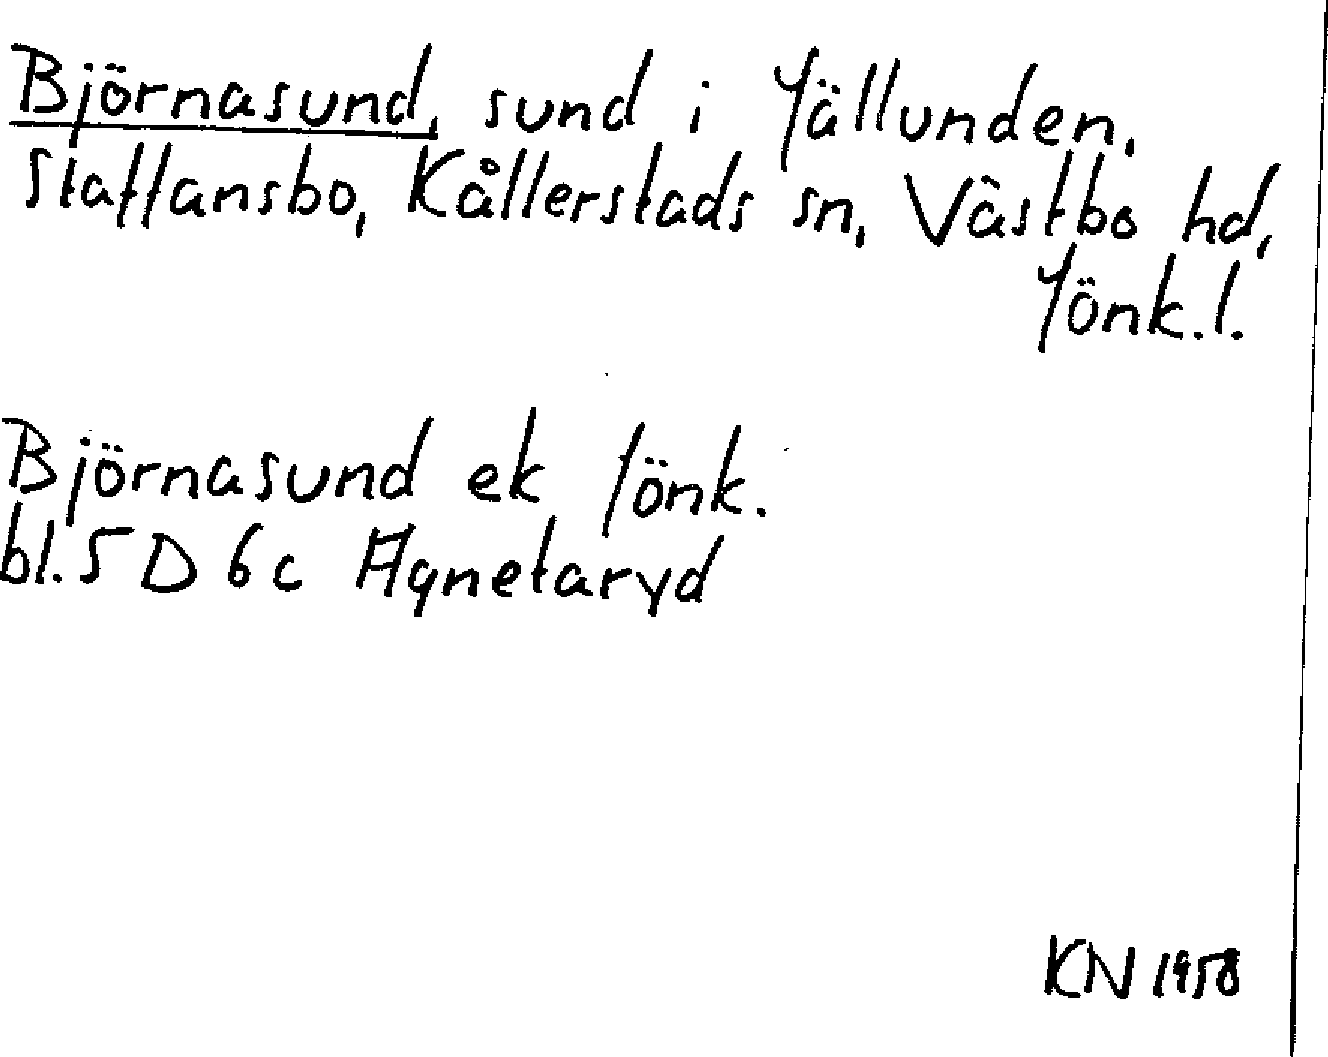 Björnasund, sund i Jällunden.
Staffansbo, Kållerstads sn, Västbo hd,
Jönk.l.
Björnasund ek Jönk.
bl. 5 D 6c Agnetaryd
KN 1958